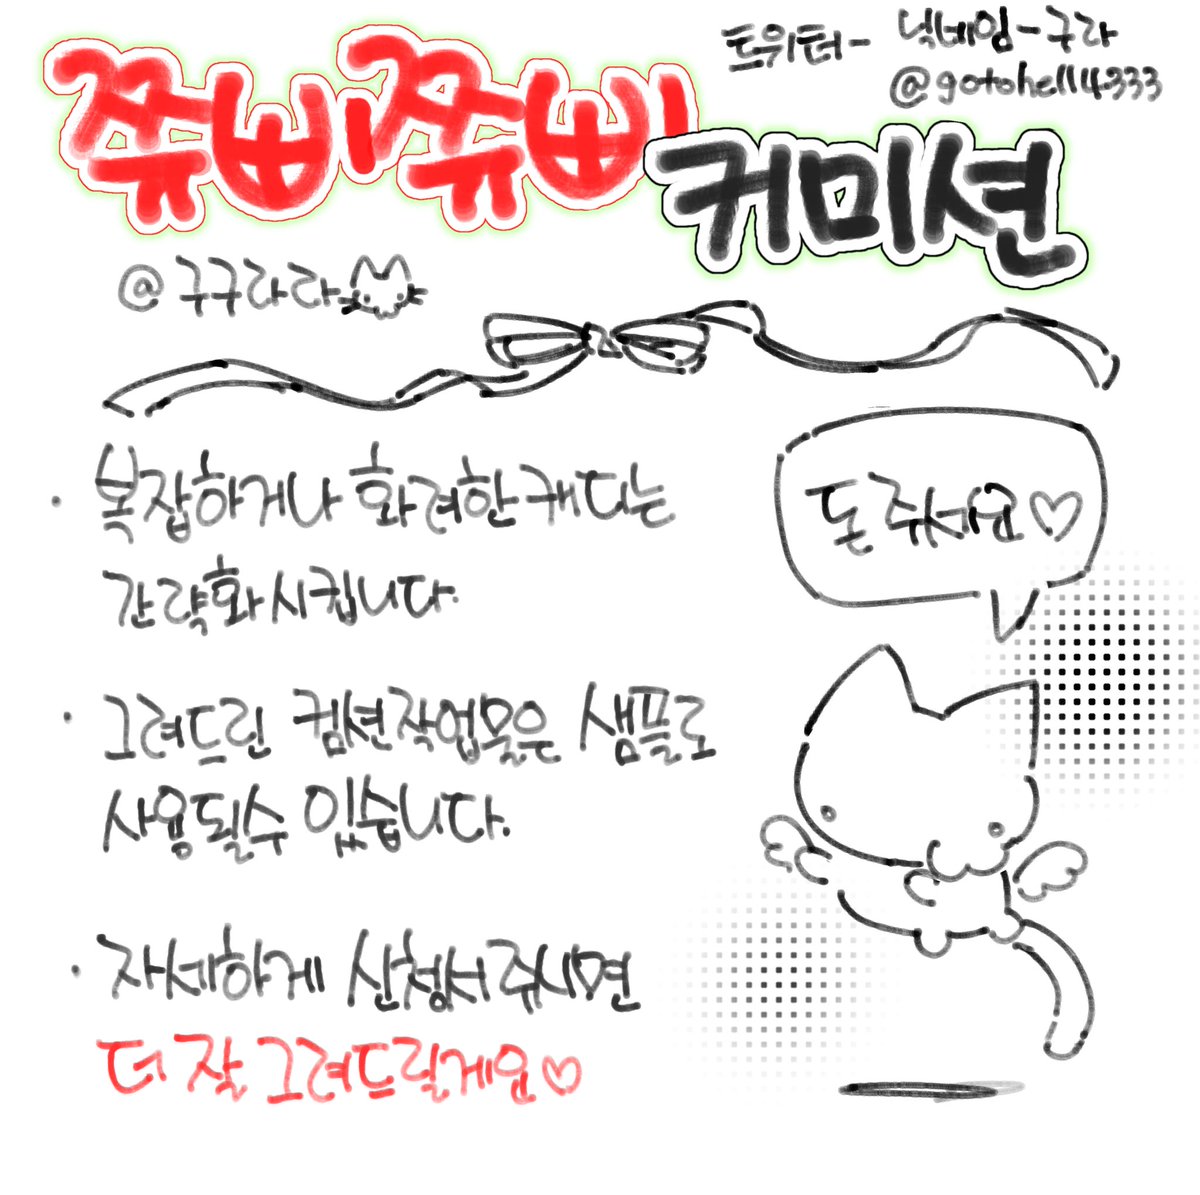 트위터- 닉네임-구라
@gotohell14333
쮸삐쮸삐
커미션
@구구라라
복잡하거나 화려한 캐디는
간략화시킵니다.
돈 주세요♡
그려드린 컴션작업물은 샘플로
사용될수 있습니다.
자세하게 신청서주시면
더 잘 그려드릴게요♡